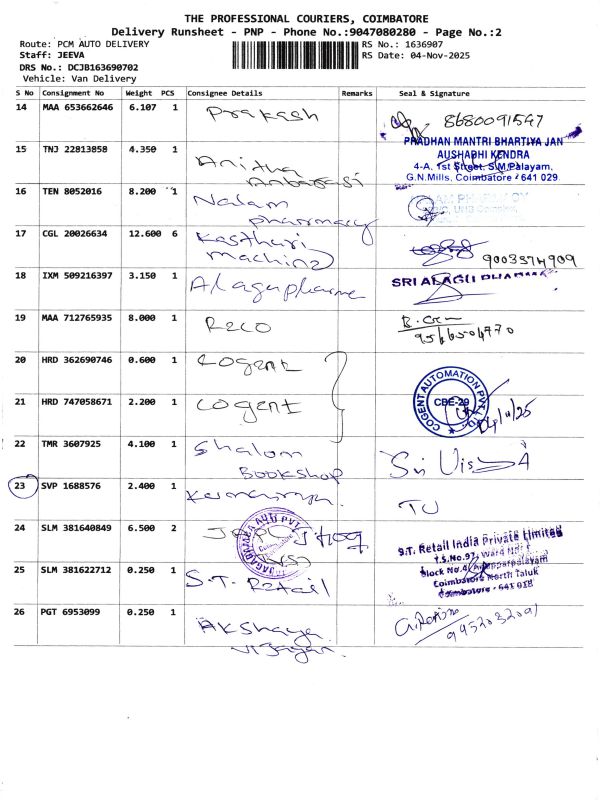 THE PROFESSIONAL COURIERS, COIMBATORE
Delivery Runsheet - PNP - Phone No.:9047080280 - Page No.:2
Route: PCM AUTO DELIVERY
RS No.: 1636907
Staff: JEEVA
RS Date: 04-Nov-2025
DRS No.: DCJB163690702
Vehicle: Van Delivery
S No Consignment No Weight PCS Consignee Details Remarks Seal & Signature
14 MAA 653662646 6.107 1 Prakash 8680091547
15 TNJ 22813858 4.350 1 Anitha
PRADHAN MANTRI BHARTIYA JAN
AUSHADHI KENDRA
4-A, 1st Street, S.M.Palayam,
G.N.Mills, Coimbatore - 641 029.
16 TEN 8052016 8.200 1 Nalam
pharmacy
17 CGL 20026634 12.600 6 Kasthuri
machine
9003374909
18 IXM 509216397 3.150 1 Alagupharma SRI ALAGU PHARMA
19 MAA 712765935 8.000 1 Reco
20 HRD 362690746 0.600 1 Cogent
21 HRD 747058671 2.200 1 Cogent
COGENT AUTOMATION PVT. LTD.
CBE-29
22 TMR 3607925 4.100 1 Shalom
Bookshop
Sri
23 SVP 1688576 2.400 1
24 SLM 381640849 6.500 2
25 SLM 381622712 0.250 1 S.T. Retail
S.T. Retail India Private Limited
Coimbatore North Taluk
Coimbatore - 641 018
26 PGT 6953099 0.250 1 Akshaya
Vijayan
9952032091